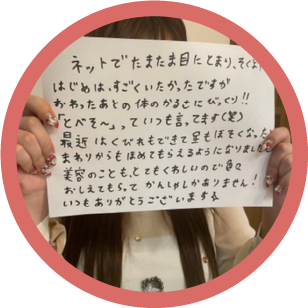 ネットでたまたま目にとまり、そくよ
はじめは、すごくいたかったですが
おわったあとの体のかるさにびっくり!!
「とべそ〜」っていつも言ってます(笑)
最近はくびれもできて足もほそくなった
まわりからもほめてもらえるようになりました
美容のことも、とてもくわしいので色々
おしえてもらって かんしゃしかありません!
いつもありがとうございます